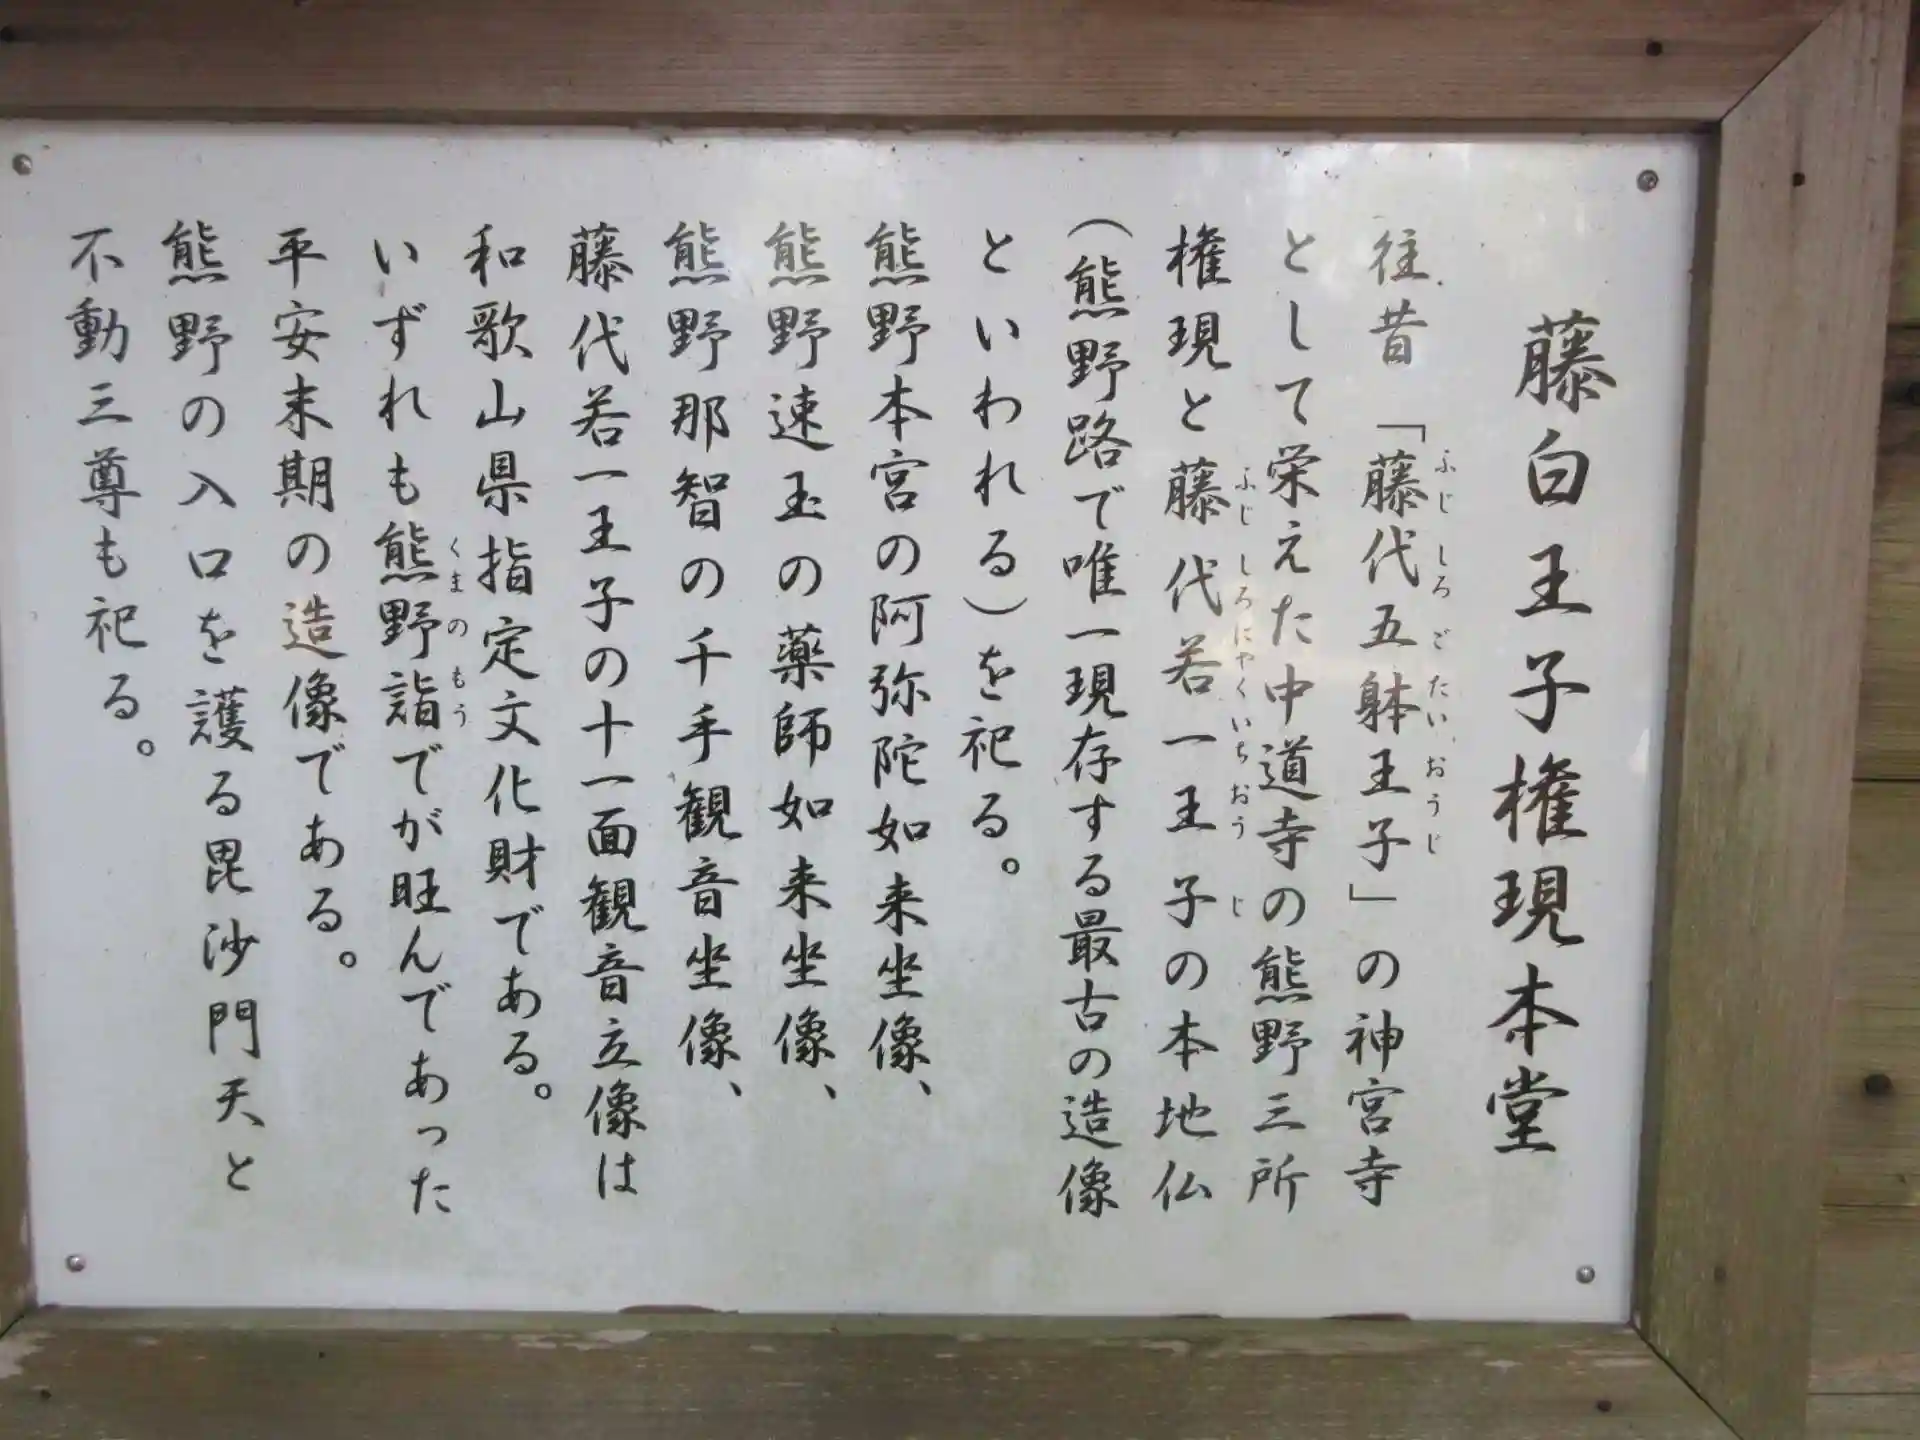 藤白王子権現本堂
往昔「藤代五躰王子」の神宮寺
として栄えた中道寺の熊野三所
権現と藤代若一王子の本地仏
(熊野路で唯一現存する最古の造像
といわれる)を祀る。
熊野本宮の阿弥陀如来坐像、
熊野速玉の薬師如来坐像、
熊野那智の千手観音坐像、
藤代若一王子の十一面観音立像は
和歌山県指定文化財である。
いずれも熊野詣でが旺んであった
平安末期の造像である。
熊野の入口を護る毘沙門天と
不動三尊も祀る。